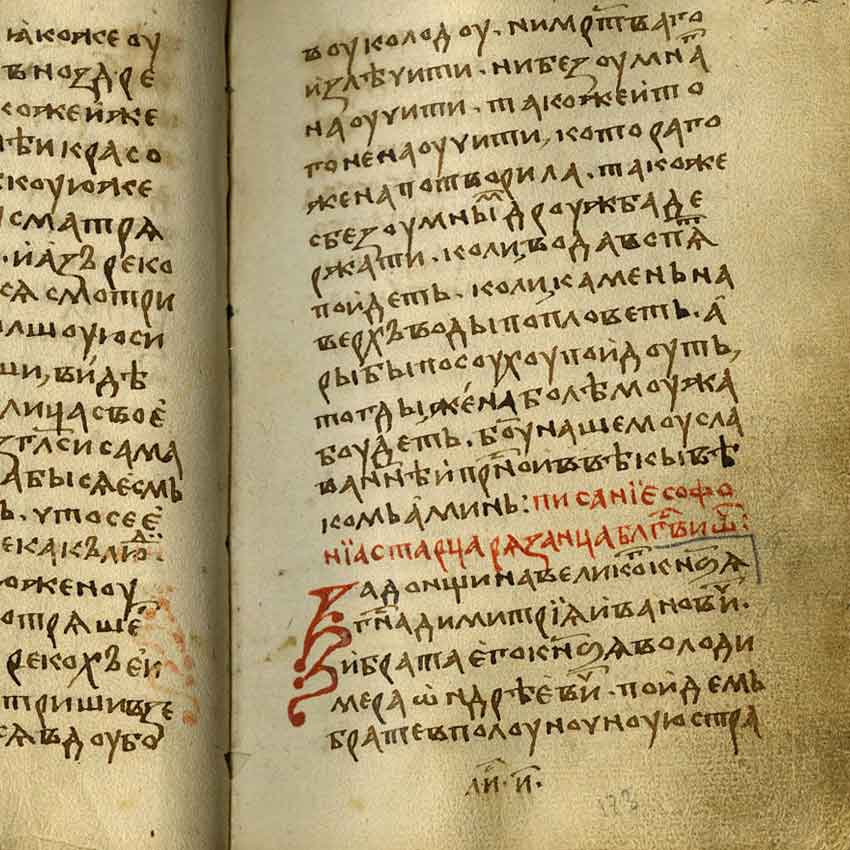 ꙗкоже оу
ъноздре
коже й же
ѣи красо
коую же
сматрѧ
й азъ реко
сѧ смотри
лшоую си
ши, вйдѣ
лица своѐ
гл҃си сама
абы сѧ есмь
ь. что се ѐ
екакъ ли
оженоу
отрѧше
рекохъ ей
триши въ зе
сѧ въ доубо
въ оу колодоу. ни мрт҃ваго
излѣчити. ни безоумна
наоучити. такоже й то
го не наоучити, котораго
жена потворила. такоже
с безоумны дроужба де
ржати. коли вода въспѧ
пойдеть. коли камень на
верхъ воды попловеть. а̀
рыбы по соухоу пойдоуть,
тогды жена̀ болѣ моужа
боудеть. бо҃у нашемоу сла
ва н҃нѣ й прⷭ҇но и въ вѣкы вѣ
комь а̀минь: писание Софо
нїа старца рѧзанца, блгⷭ҇ви ѿч҃:
Задонщина великого кнѧзѧ
гⷭ҇на димитрїѧ йвановичѧ.
й брата ѐго кнѧзѧ володи
мера ѡндрѣевичѧ. пойдемь
брате в полоуночноую стра